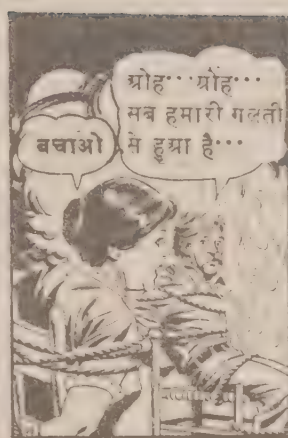 बचाओ
ओह···ओह···
सब हमारी गलती
से हुआ है···